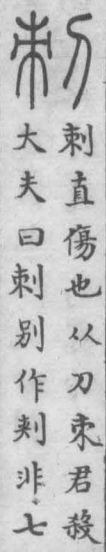 刺
刺直傷也从刀朿君殺
大夫曰刺别作㓨非七